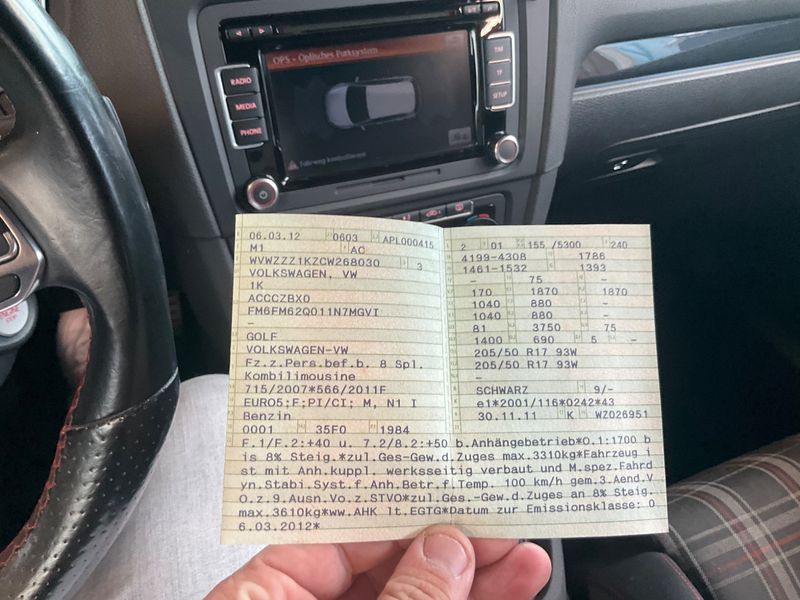 OPS - Optisches Parksystem
RADIO
MEDIA
PHONE
TIM
TP
SETUP
Fahrweg kontrollieren!
06.03.12 0603 APL000415
M1 AC
WVWZZZ1KZCW268030 3
VOLKSWAGEN, VW
1K
ACCCZBX0
FM6FM62Q011N7MGVI
–
GOLF
VOLKSWAGEN-VW
Fz.z.Pers.bef.b. 8 Spl.
Kombilimousine
715/2007*566/2011F
EURO5;F;PI/CI; M, N1 I
Benzin
0001 35F0 1984
2 01 155 /5300 240
4199-4308 1786
1461-1532 1393
– 75 –
170 1870 1870
1040 880 –
1040 880 –
81 3750 75
1400 690 5 –
205/50 R17 93W
205/50 R17 93W
–
SCHWARZ 9/–
e1*2001/116*0242*43
30.11.11 K WZ026951
F.1/F.2:+40 u. 7.2/8.2:+50 b.Anhängebetrieb*O.1:1700 b
is 8% Steig.*zul.Ges-Gew.d.Zuges max.3310kg*Fahrzeug i
st mit Anh.kuppl. werksseitig verbaut und M.spez.Fahrd
yn.Stabi.Syst.f.Anh.Betr.f.Temp. 100 km/h gem.3.Aend.V
O.z.9.Ausn.Vo.z.STVO*zul.Ges.-Gew.d.Zuges an 8% Steig.
max.3610kg*ww.AHK lt.EGTG*Datum zur Emissionsklasse: 0
6.03.2012*